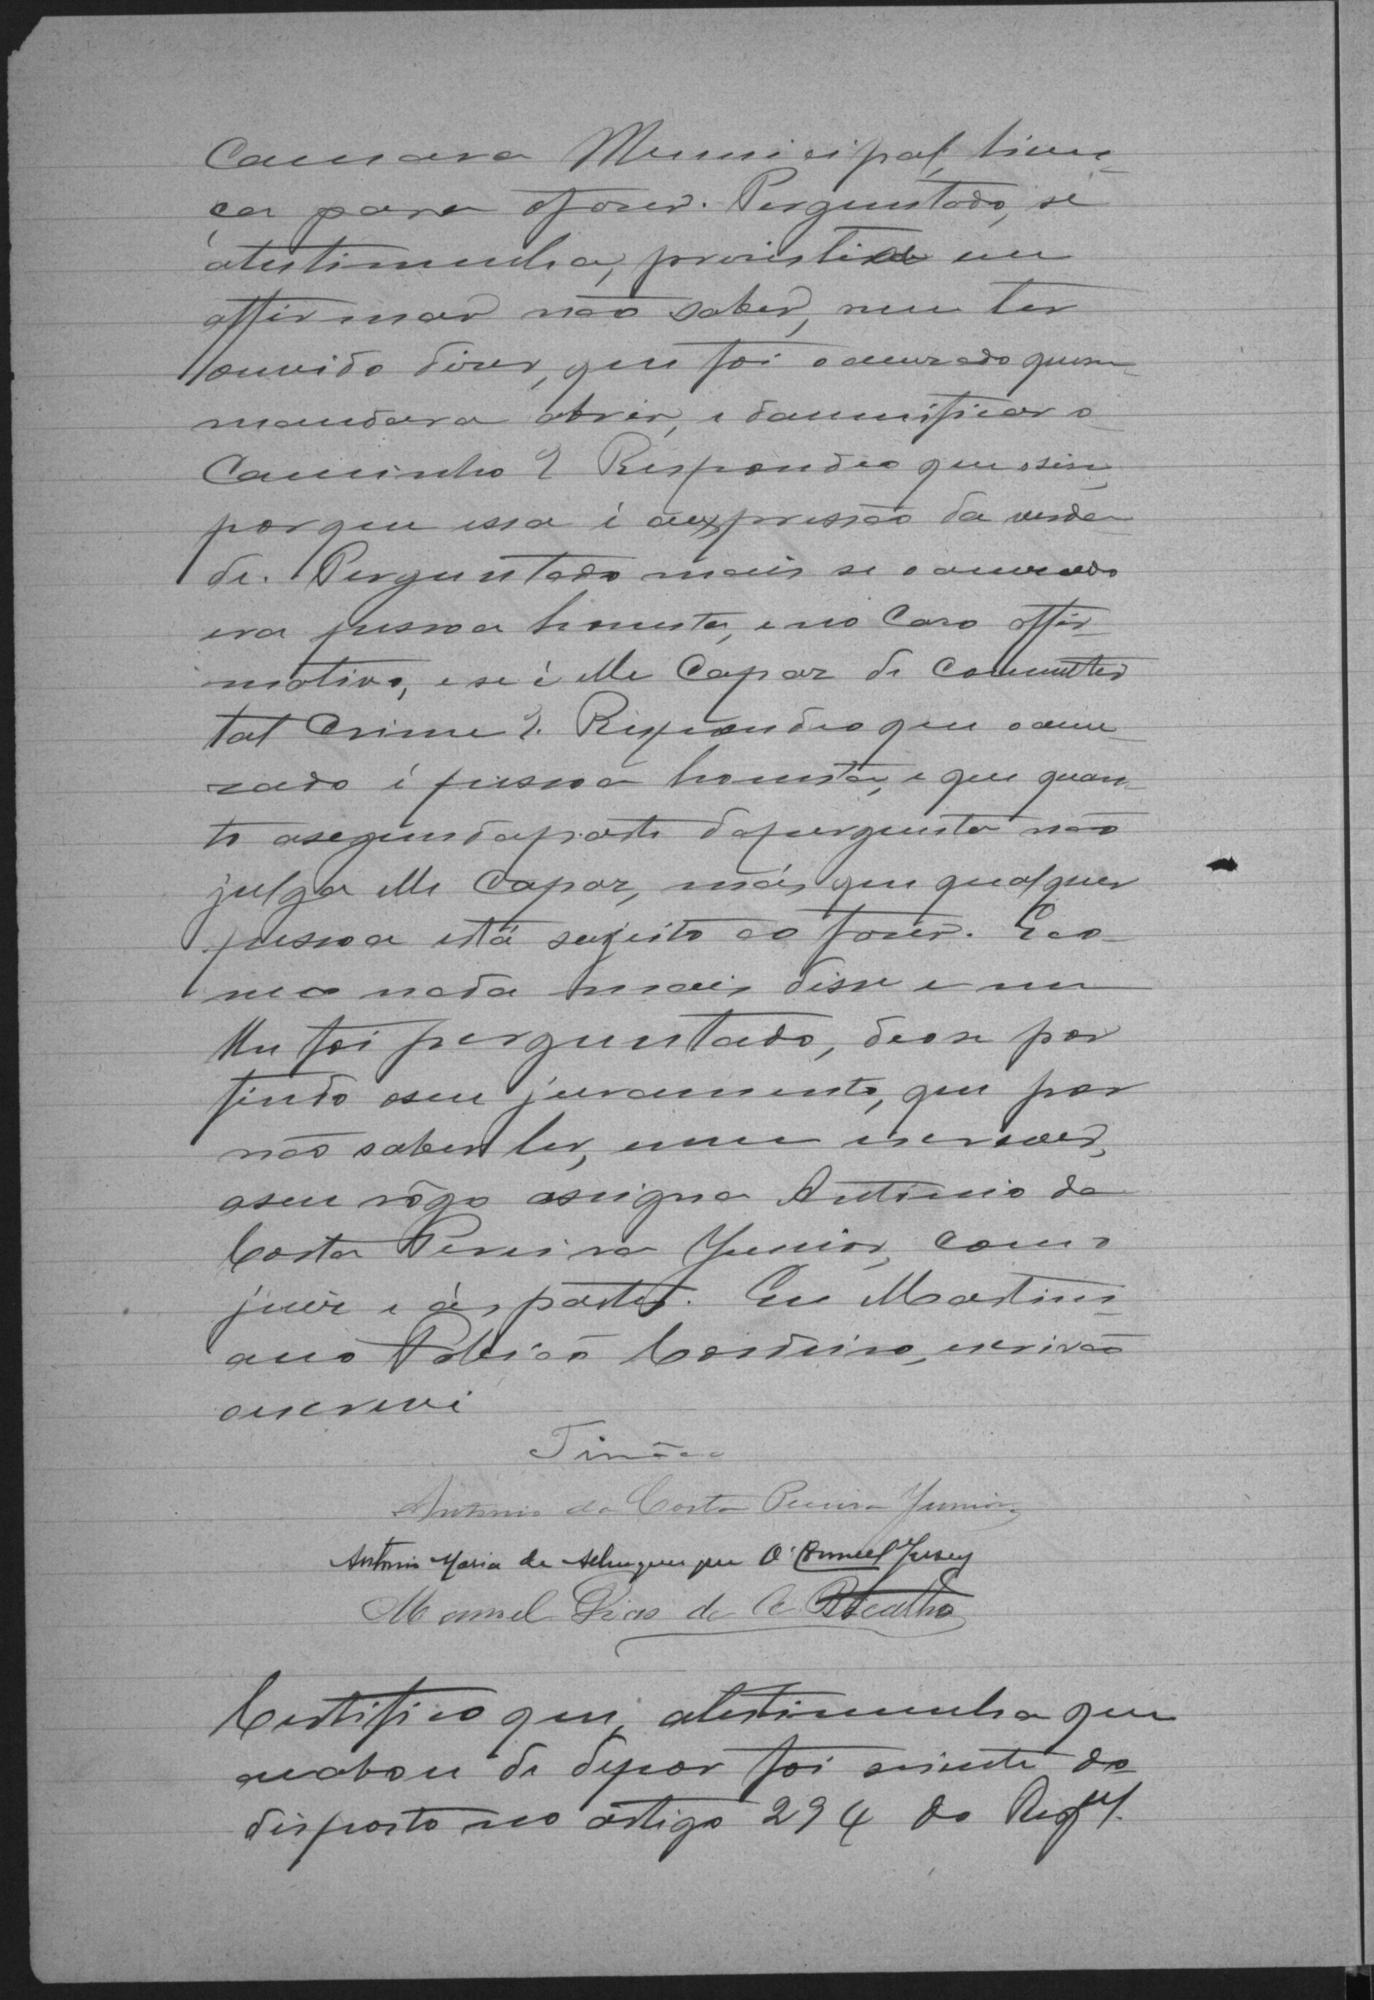 Camara Municipal, licen-
ça para ofazer. Perguntado, se
atestimunha, prevista em
affirmar não saber, nem ter
ouvido dizer, que foi oacuzado quem
mandara abrir, e damnificar o
Caminho? Respondeo que sim,
porque essa é aexpressão da verda-
de. Perguntado mais se oacuzado
era pessoa honesta, e no Cazo affir-
mativo, e se é elle Capaz de Cometter
tal Crime? Respondeo que oacu-
zado é pessoa honesta, e que quan-
to asegundaparte dapergunta não
julga elle Capaz, más que qualquer
pessoa está sujeito ao fazer. E co-
mo nada mais disse e nem
lhe foi perguntado, deose por
findo oseu juramento, que por
não saber ler, nem escrever,
aseu rôgo assigna Antonio da
Costa Pereira Junior, com o
juiz e ás partes. Eu Martini-
ano Cordeiro, escrivão
oescrevi
Antonio da Costa Pereira Junior
Antonio Maria de Albuquerque O'Connell Jersey
Manoel Dias de
Certifico que, atestimunha que
acabou de depor foi sciente do
disposto no artigo 294 do Regul.